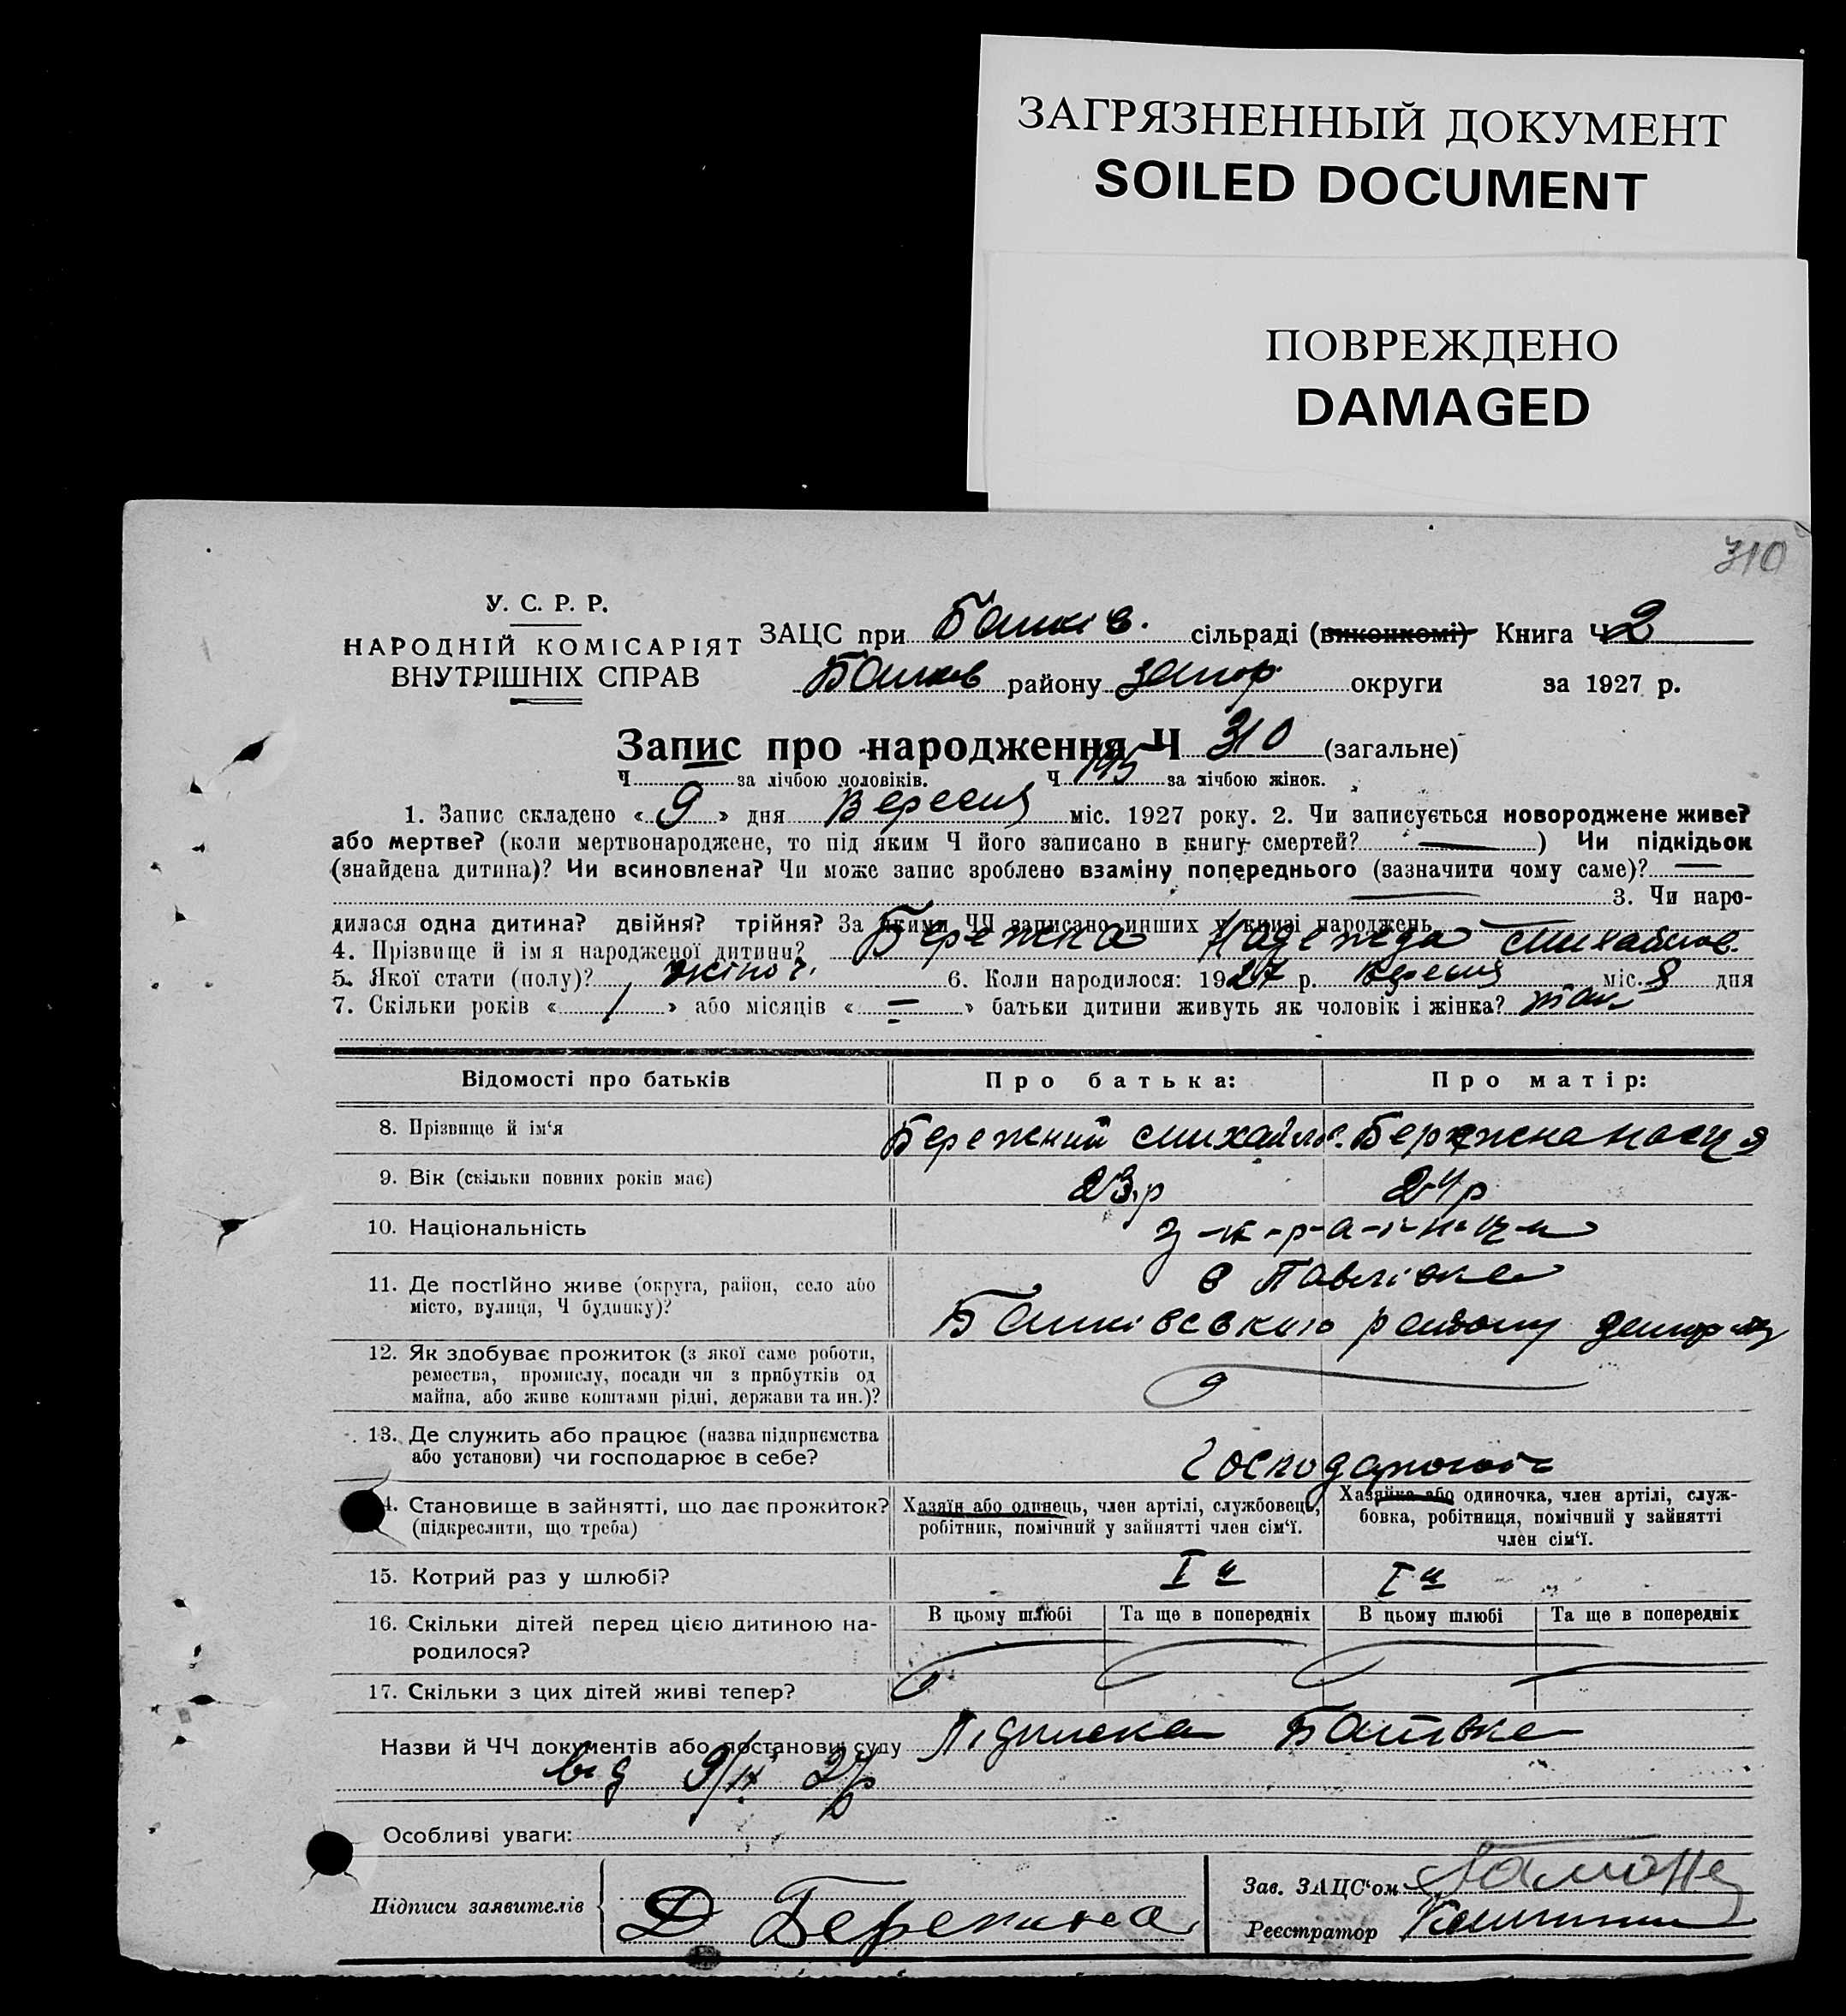 ЗАГРЯЗНЕННЫЙ ДОКУМЕНТ
SOILED DOCUMENT
ПОВРЕЖДЕНО
DAMAGED
310
У. С. Р. Р.
НАРОДНІЙ КОМІСАРІЯТ
ВНУТРІШНІХ СПРАВ
ЗАЦС при Башків. сільраді (виконкомі) Книга Ч 2
Башков району Запор. округи за 1927 р.
Запис про народження Ч 310 (загальне)
Ч за лічбою чоловіків. Ч за лічбою жінок.
1. Запис складено « 9 » дня Вересня міс. 1927 року. 2. Чи записується новороджене живе?
або мертве? (коли мертвонароджене, то під яким Ч його записано в книгу смертей? — ) Чи підкідьок
(знайдена дитина)? Чи всиновлена? Чи може запис зроблено взаміну попереднього (зазначити чому саме)? —
— 3. Чи наро-
дилася одна дитина? двійня? трійня? За якими ЧЧ записано инших у книзі народжень
4. Прізвище й ім я народженої дитини? Бережна Надежда Михайлов.
5. Якої стати (полу)? жіноч. 6. Коли народилося: 1927 р. Вересня міс. 8 дня
7. Скільки років « 1 » або місяців « — » батьки дитини живуть як чоловік і жінка? так
Відомості про батьків Про батька: Про матір:
8. Прізвище й ім‘я Бережний Михайло. Бережна Настя
9. Вік (скільки повних років має) 23 р 24 р
10. Національність у-к-р-а-ї-н-ц-и
11. Де постійно живе (округа, район, село або
місто, вулиця, Ч будинку)?
в Павлівке
Башківського району Запор
12. Як здобуває прожиток (з якої саме роботи,
ремества, промислу, посади чи з прибутків од
майна, або живе коштами рідні, держави та ин.)?
13. Де служить або працює (назва підприємства
або установи) чи господарює в себе?
Господарюють
4. Становище в зайнятті, що дає прожиток?
(підкреслити, що треба)
Хазяїн або одинець, член артілі, службовець,
робітник, помічний у зайнятті член сім‘ї.
Хазяйка або одиночка, член артілі, служ-
бовка, робітниця, помічний у зайнятті
член сім‘ї.
15. Котрий раз у шлюбі? І й І й
16. Скільки дітей перед цією дитиною на-
родилося?
В цьому шлюбі Та ще в попередніх В цьому шлюбі Та ще в попередніх
17. Скільки з цих дітей живі тепер?
Назви й ЧЧ документів або постанови суду Підписка Батька
від 9/ІХ 27р
Особливі уваги:
Підписи заявителів Д Бережна
Зав. ЗАЦС‘ом
Реєстратор